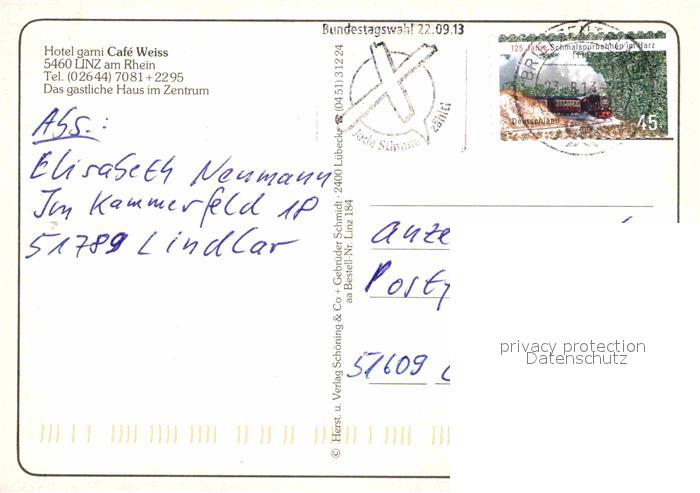 Hotel garni Café Weiss
5460 LINZ am Rhein
Tel. (02644) 7081+2295
Das gastliche Haus im Zentrum
Abs.:
Elisabeth Neumann
Im Kammerfeld 18
51789 Lindlar
© Herst. u. Verlag Schöning & Co + Gebrüder Schmidt · 2400 Lübeck ☎ (0451) 31224
aa Bestell-Nr. Linz 184
Bundestagswahl 22.09.13
Jede Stimme zählt!
125 Jahre Schmalspurbahnen im Harz
Deutschland
45
23.8.13
51609
privacy protection
Datenschutz